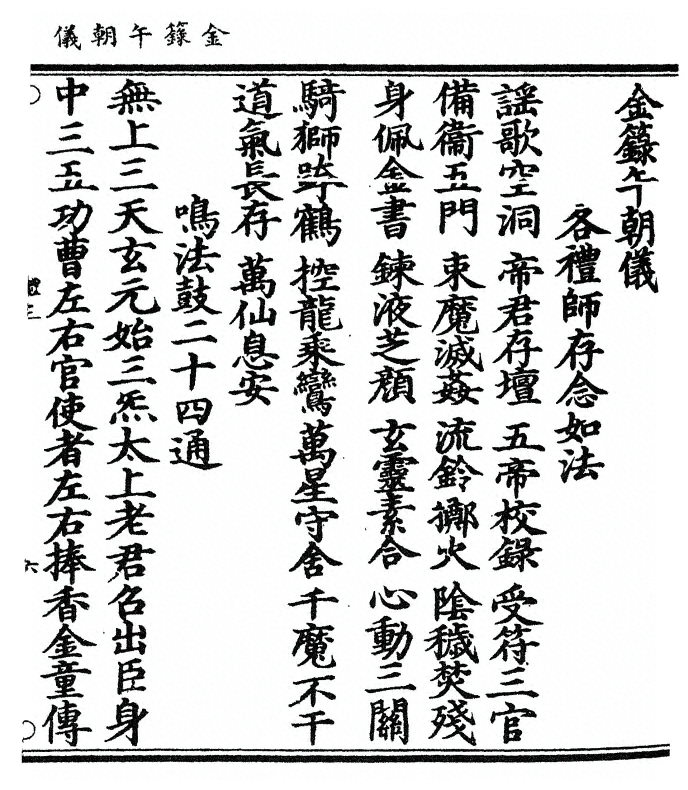 金籙午朝儀
金籙午朝儀
各禮師存念如法
謡歌空洞 帝君存壇 五帝校録 受符三官
備衞五門 束魔滅姦 流鈴擲火 陰穢焚殘
身佩金書 鍊液芝顔 玄靈素合 心動三關
騎獅跨鶴 控龍乘鸞 萬星守舍 千魔不干
道氣長存 萬仙息安
鳴法鼓二十四通
無上三天玄元始三炁太上老君召出臣身
中三五功曹左右官使者左右捧香金童傳
體三
六